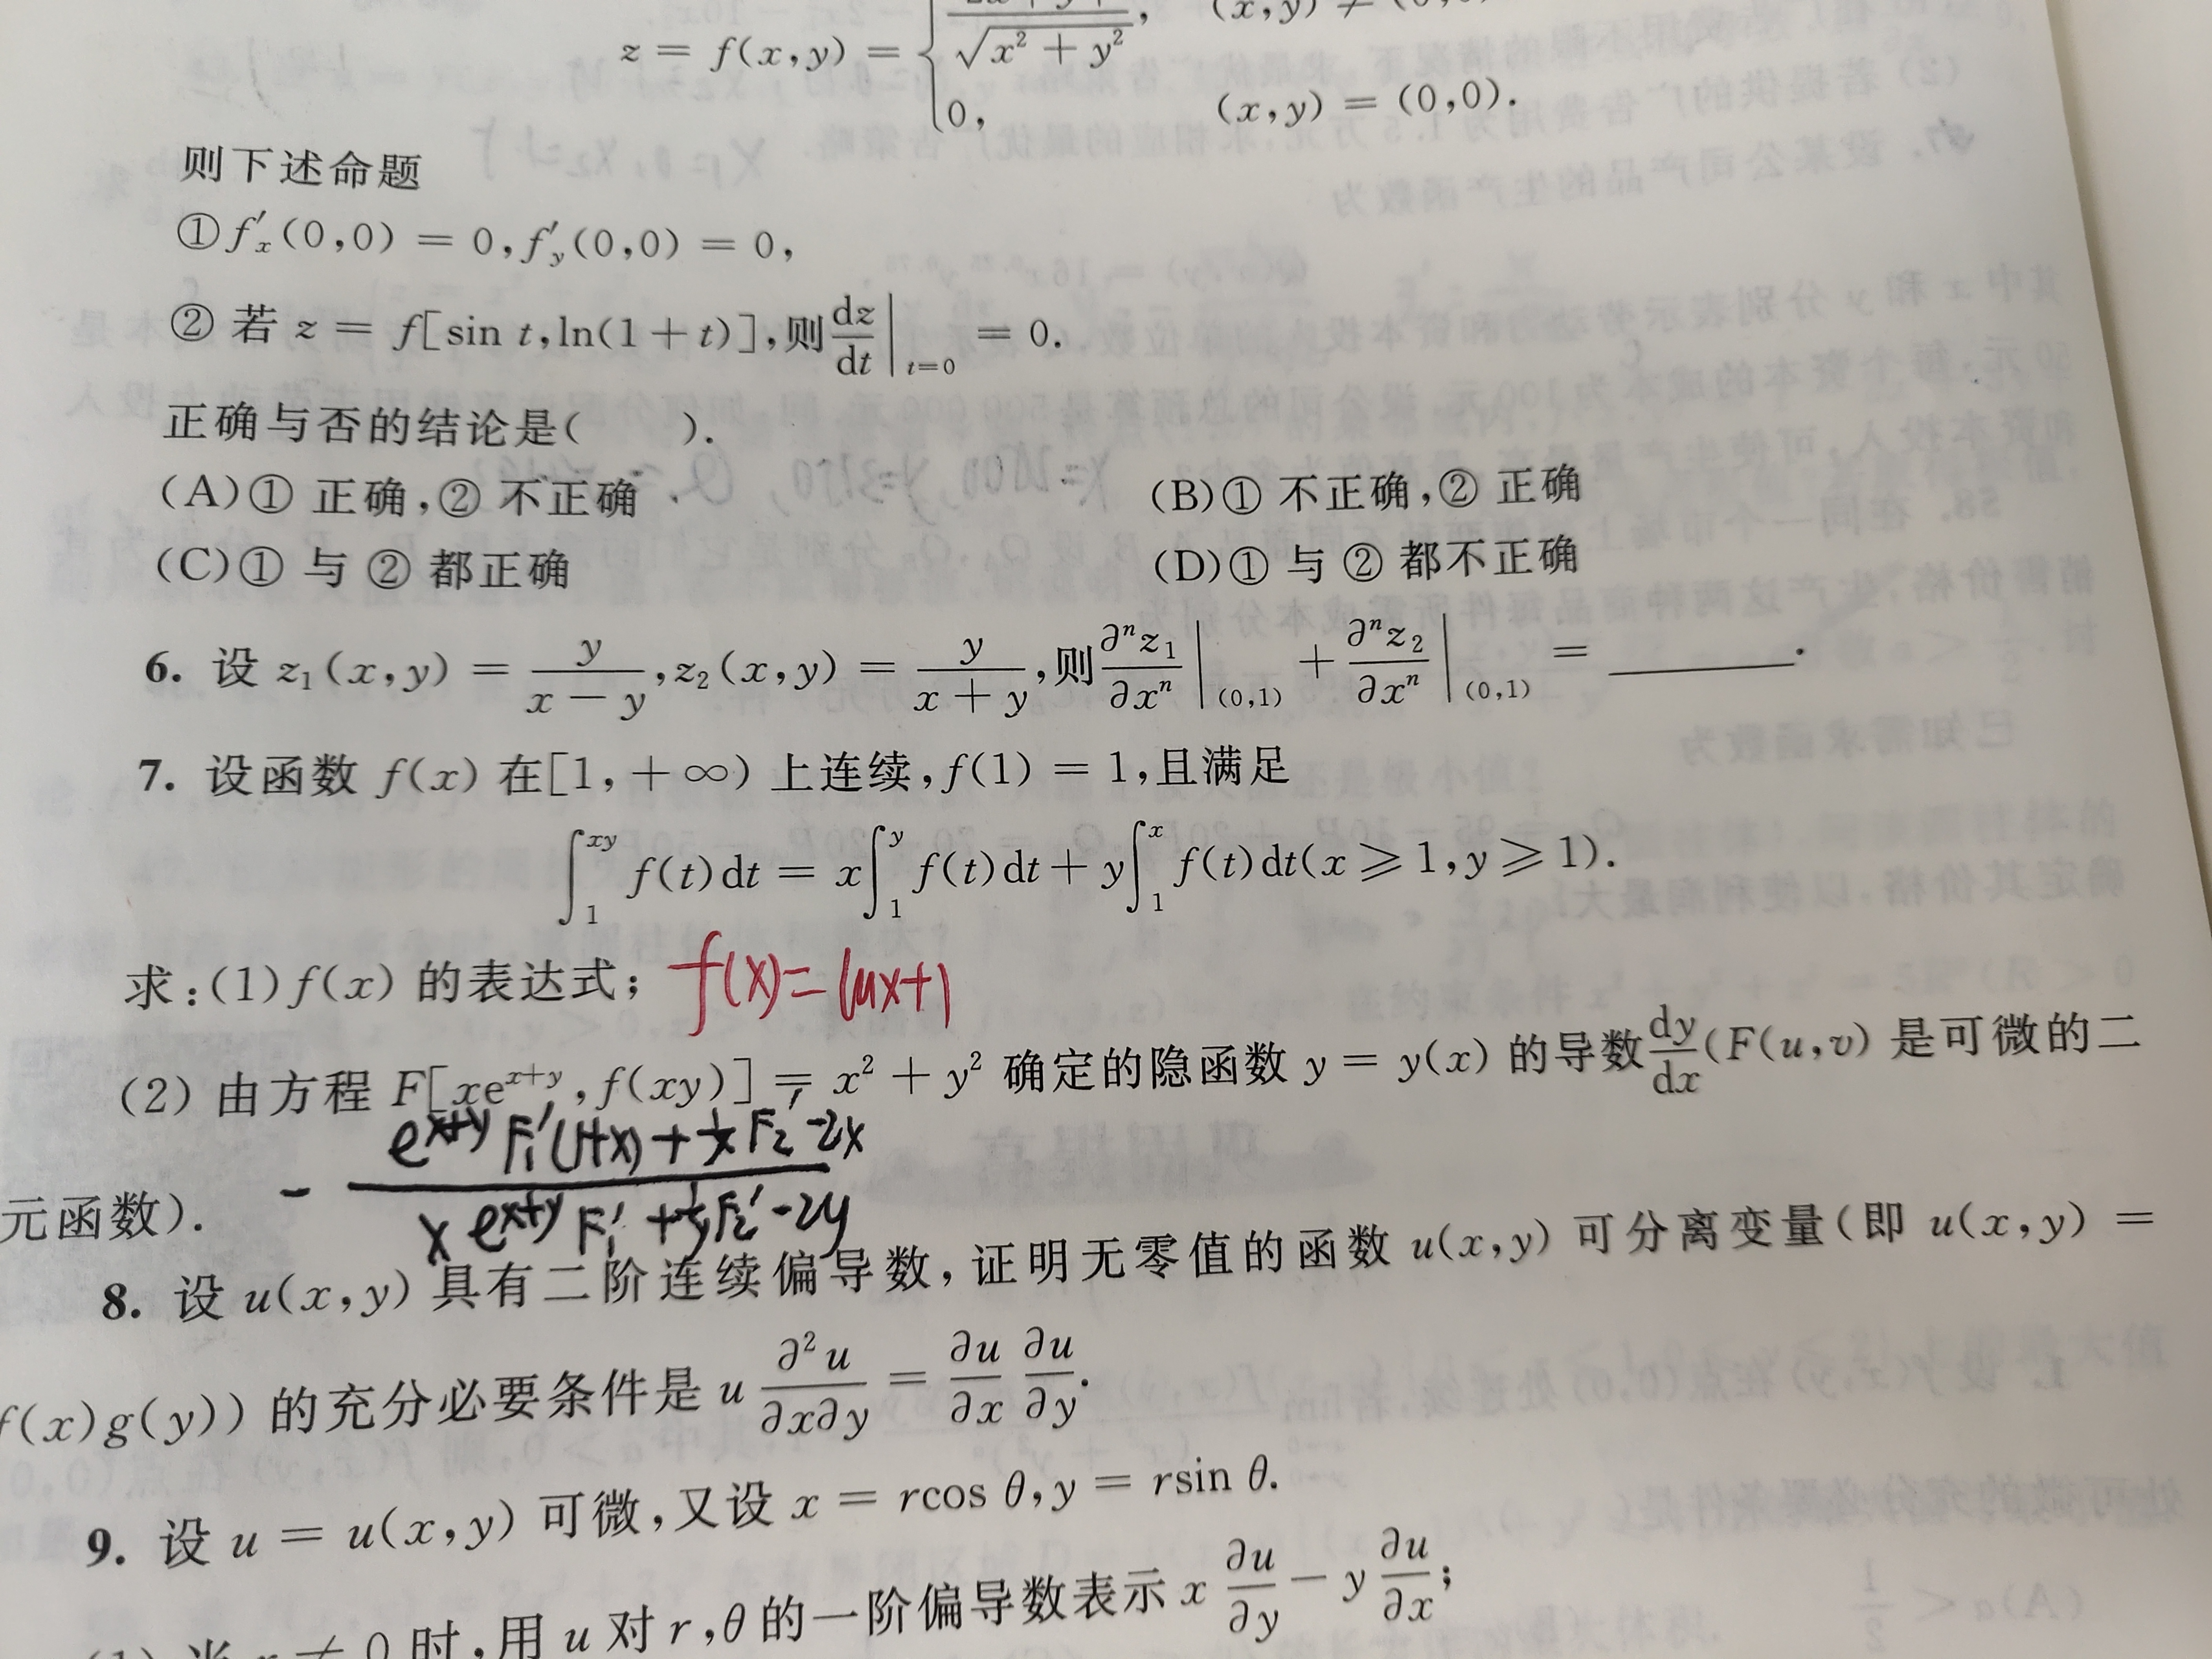 z = f(x,y) = { /√(x²+y²), (x,y) ≠ (0,0)
0, (x,y) = (0,0).
则下述命题
①f′ₓ(0,0) = 0,f′ᵧ(0,0) = 0,
② 若 z = f[sin t,ln(1+t)],则dz/dt|ₜ₌₀ = 0.
正确与否的结论是( ).
(A)① 正确,② 不正确 (B)① 不正确,② 正确
(C)① 与 ② 都正确 (D)① 与 ② 都不正确
6. 设 z₁(x,y) = y/(x−y),z₂(x,y) = y/(x+y),则∂ⁿz₁/∂xⁿ|(0,1) + ∂ⁿz₂/∂xⁿ|(0,1) = ______.
7. 设函数 f(x) 在[1,+∞) 上连续,f(1) = 1,且满足
∫₁^{xy} f(t)dt = x∫₁^{y} f(t)dt + y∫₁^{x} f(t)dt(x⩾1,y⩾1).
求:(1)f(x) 的表达式; f(x)=lnx+1
(2) 由方程 F[xe^{x+y},f(xy)] = x²+y² 确定的隐函数 y = y(x) 的导数dy/dx(F(u,v) 是可微的二
元函数). − (e^{x+y}F₁′(1+x)+1/x F₂′−2x)/(xe^{x+y}F₁′+1/y F₂′−2y)
8. 设 u(x,y) 具有二阶连续偏导数,证明无零值的函数 u(x,y) 可分离变量(即 u(x,y) =
f(x)g(y)) 的充分必要条件是 u ∂²u/∂x∂y = ∂u/∂x ∂u/∂y.
9. 设 u = u(x,y) 可微,又设 x = rcos θ,y = rsin θ.
(1) 当 r ≠ 0 时,用 u 对 r,θ 的一阶偏导数表示 x ∂u/∂y − y ∂u/∂x;